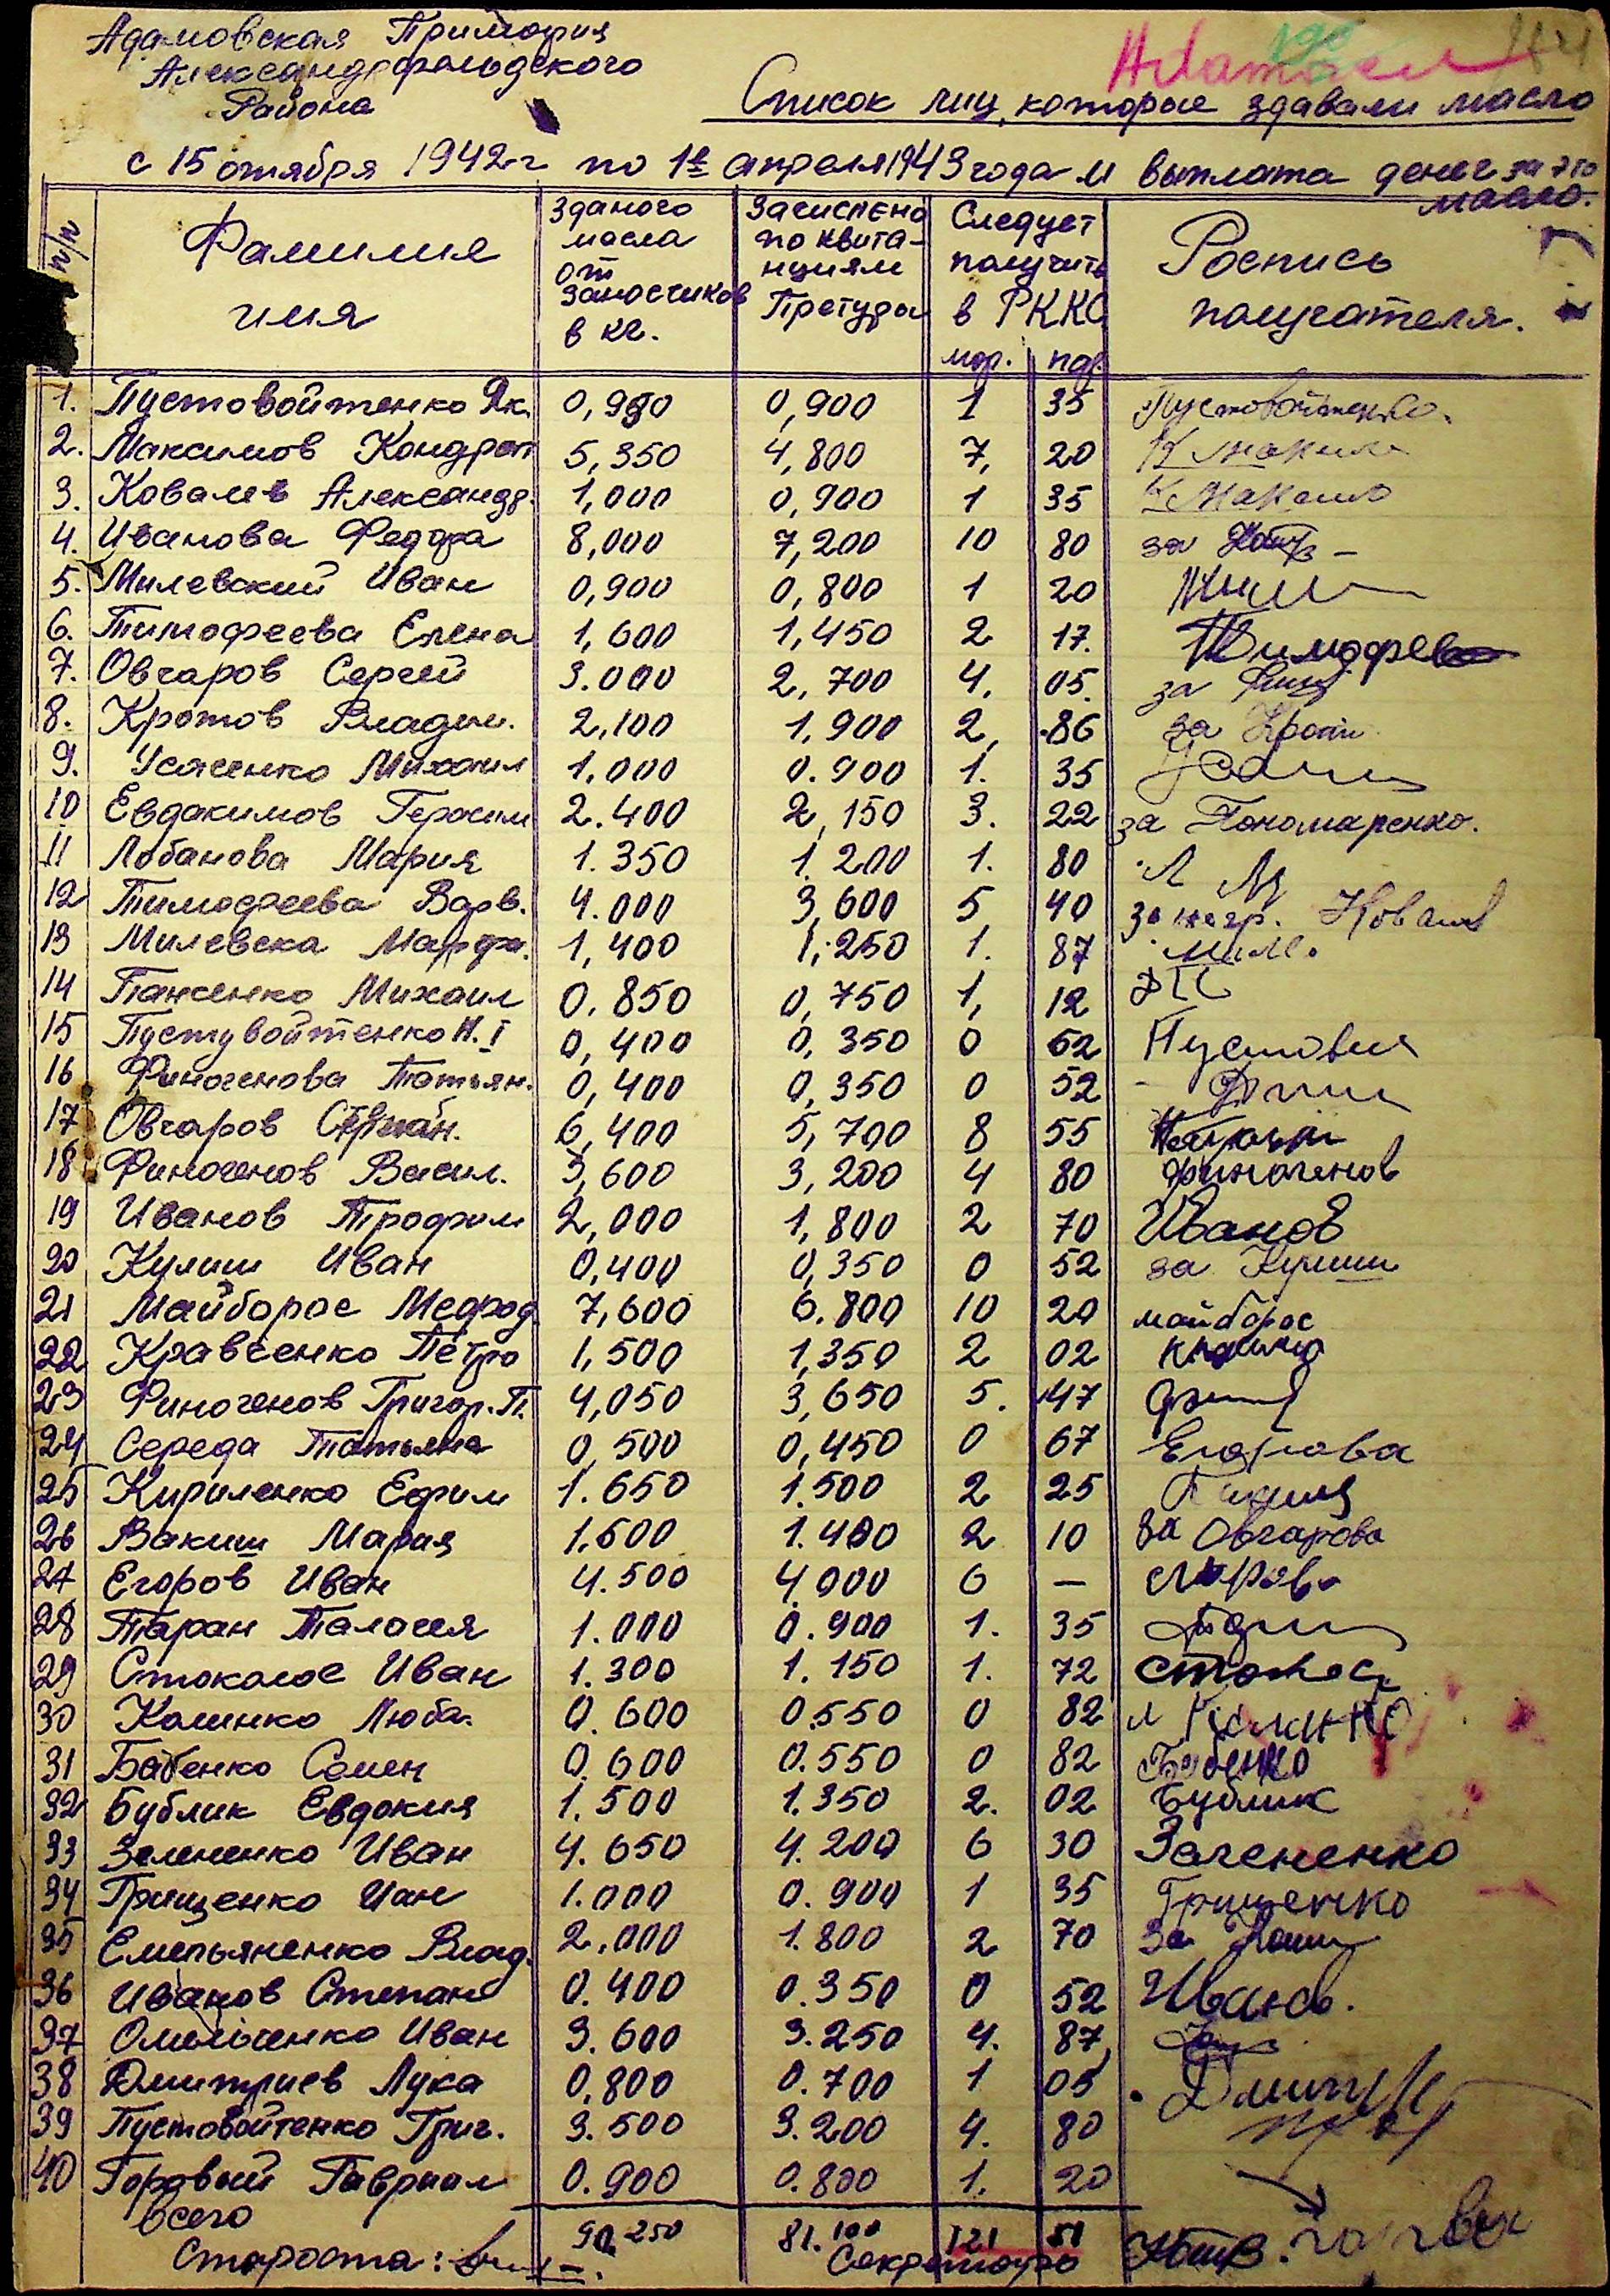 Адамовская Примория
Александрфельдского
Района
Adamовки
Список лиц, которые здавали масло
с 15 октября 1942 г по 1е апреля 1943 года и выплата денег за это
масло.
п/п
Фамилия имя
Зданого масла от заносчиков в кг.
Зачислено по квитанциям Претуры
Следует получить в РККС
мар. пф.
Роспись получателя.
1. Пустовойтенко Як. 0,990 0,900 1 35 Пустовойтенко.
2. Максимов Кондрат 5,350 4,800 7, 20
3. Ковалев Александр. 1,000 0,900 1 35
4. Иванова Федора 8,000 7,200 10 80 за
5. Милевский Иван 0,900 0,800 1 20
6. Тимофеева Елена 1,600 1,450 2 17. Тимофеева
7. Овчаров Сергей 3.000 2,700 4, 05. за
8. Кротов Владим. 2,100 1,900 2, 86 за Крот
9. Усаченко Михаил 1.000 0.900 1. 35
10 Евдакимов Герасим 2.400 2,150 3. 22 за Пономаренко.
11 Лобанова Мария 1.350 1.200 1. 80 Л М
12 Тимофеева Варв. 4.000 3,600 5 40 за негр. Ковалев
13 Милевска Марфа. 1,400 1,250 1. 87 Мил.
14 Панченко Михаил 0.850 0,750 1, 12
15 Пустувойтенко Н. I 0,400 0,350 0 52 Пустовия
16 Финогенова Татьян. 0,400 0,350 0 52
17 Овчаров Степан. 6,400 5,700 8 55
18 Финогенов Васил. 3,600 3,200 4 80 Финогенов
19 Иванов Трофим 2,000 1,800 2 70 Иванов
20 Кулиш Иван 0,400 0,350 0 52 за Кулиш
21 Майборос Мефод. 7,600 6.800 10 20 майборос
22 Кравченко Пётро 1,500 1,350 2 02
23 Финогенов Григор. П. 4,050 3,650 5. 47
24 Середа Татьяна 0,500 0,450 0 67 Егорова
25 Кириленко Ефим 1.650 1.500 2 25
26 Вакиш Мария 1.600 1.400 2 10 за Овчарова
27 Егоров Иван 4.500 4.000 6 —
28 Таран Талагея 1.000 0.900 1. 35
29 Стоколос Иван 1.300 1.150 1. 72
30 Калинко Люба. 0.600 0.550 0 82 Л Калинко
31 Бабенко Семен 0.600 0.550 0 82 Бабенко
32 Бублик Евдокия 1.500 1.350 2. 02 Бублик
33 Зелененко Иван 4.650 4.200 6 30 Зелененко
34 Грищенко Иан 1.000 0.900 1 35 Грищенко
35 Емельяненко Влад. 2.000 1.800 2 70 За
36 Иванов Степан 0.400 0.350 0 52 Иванов.
37 Омельченко Иван 3.600 3.250 4. 87
38 Дмитриев Лука 0.800 0.700 1 05
39 Пустовойтенко Григ. 3.500 3.200 4. 80
40 Горовый Гавриил 0.900 0.800 1. 20
Всего 90.250 81.100 121 51
Староста: Секретарь